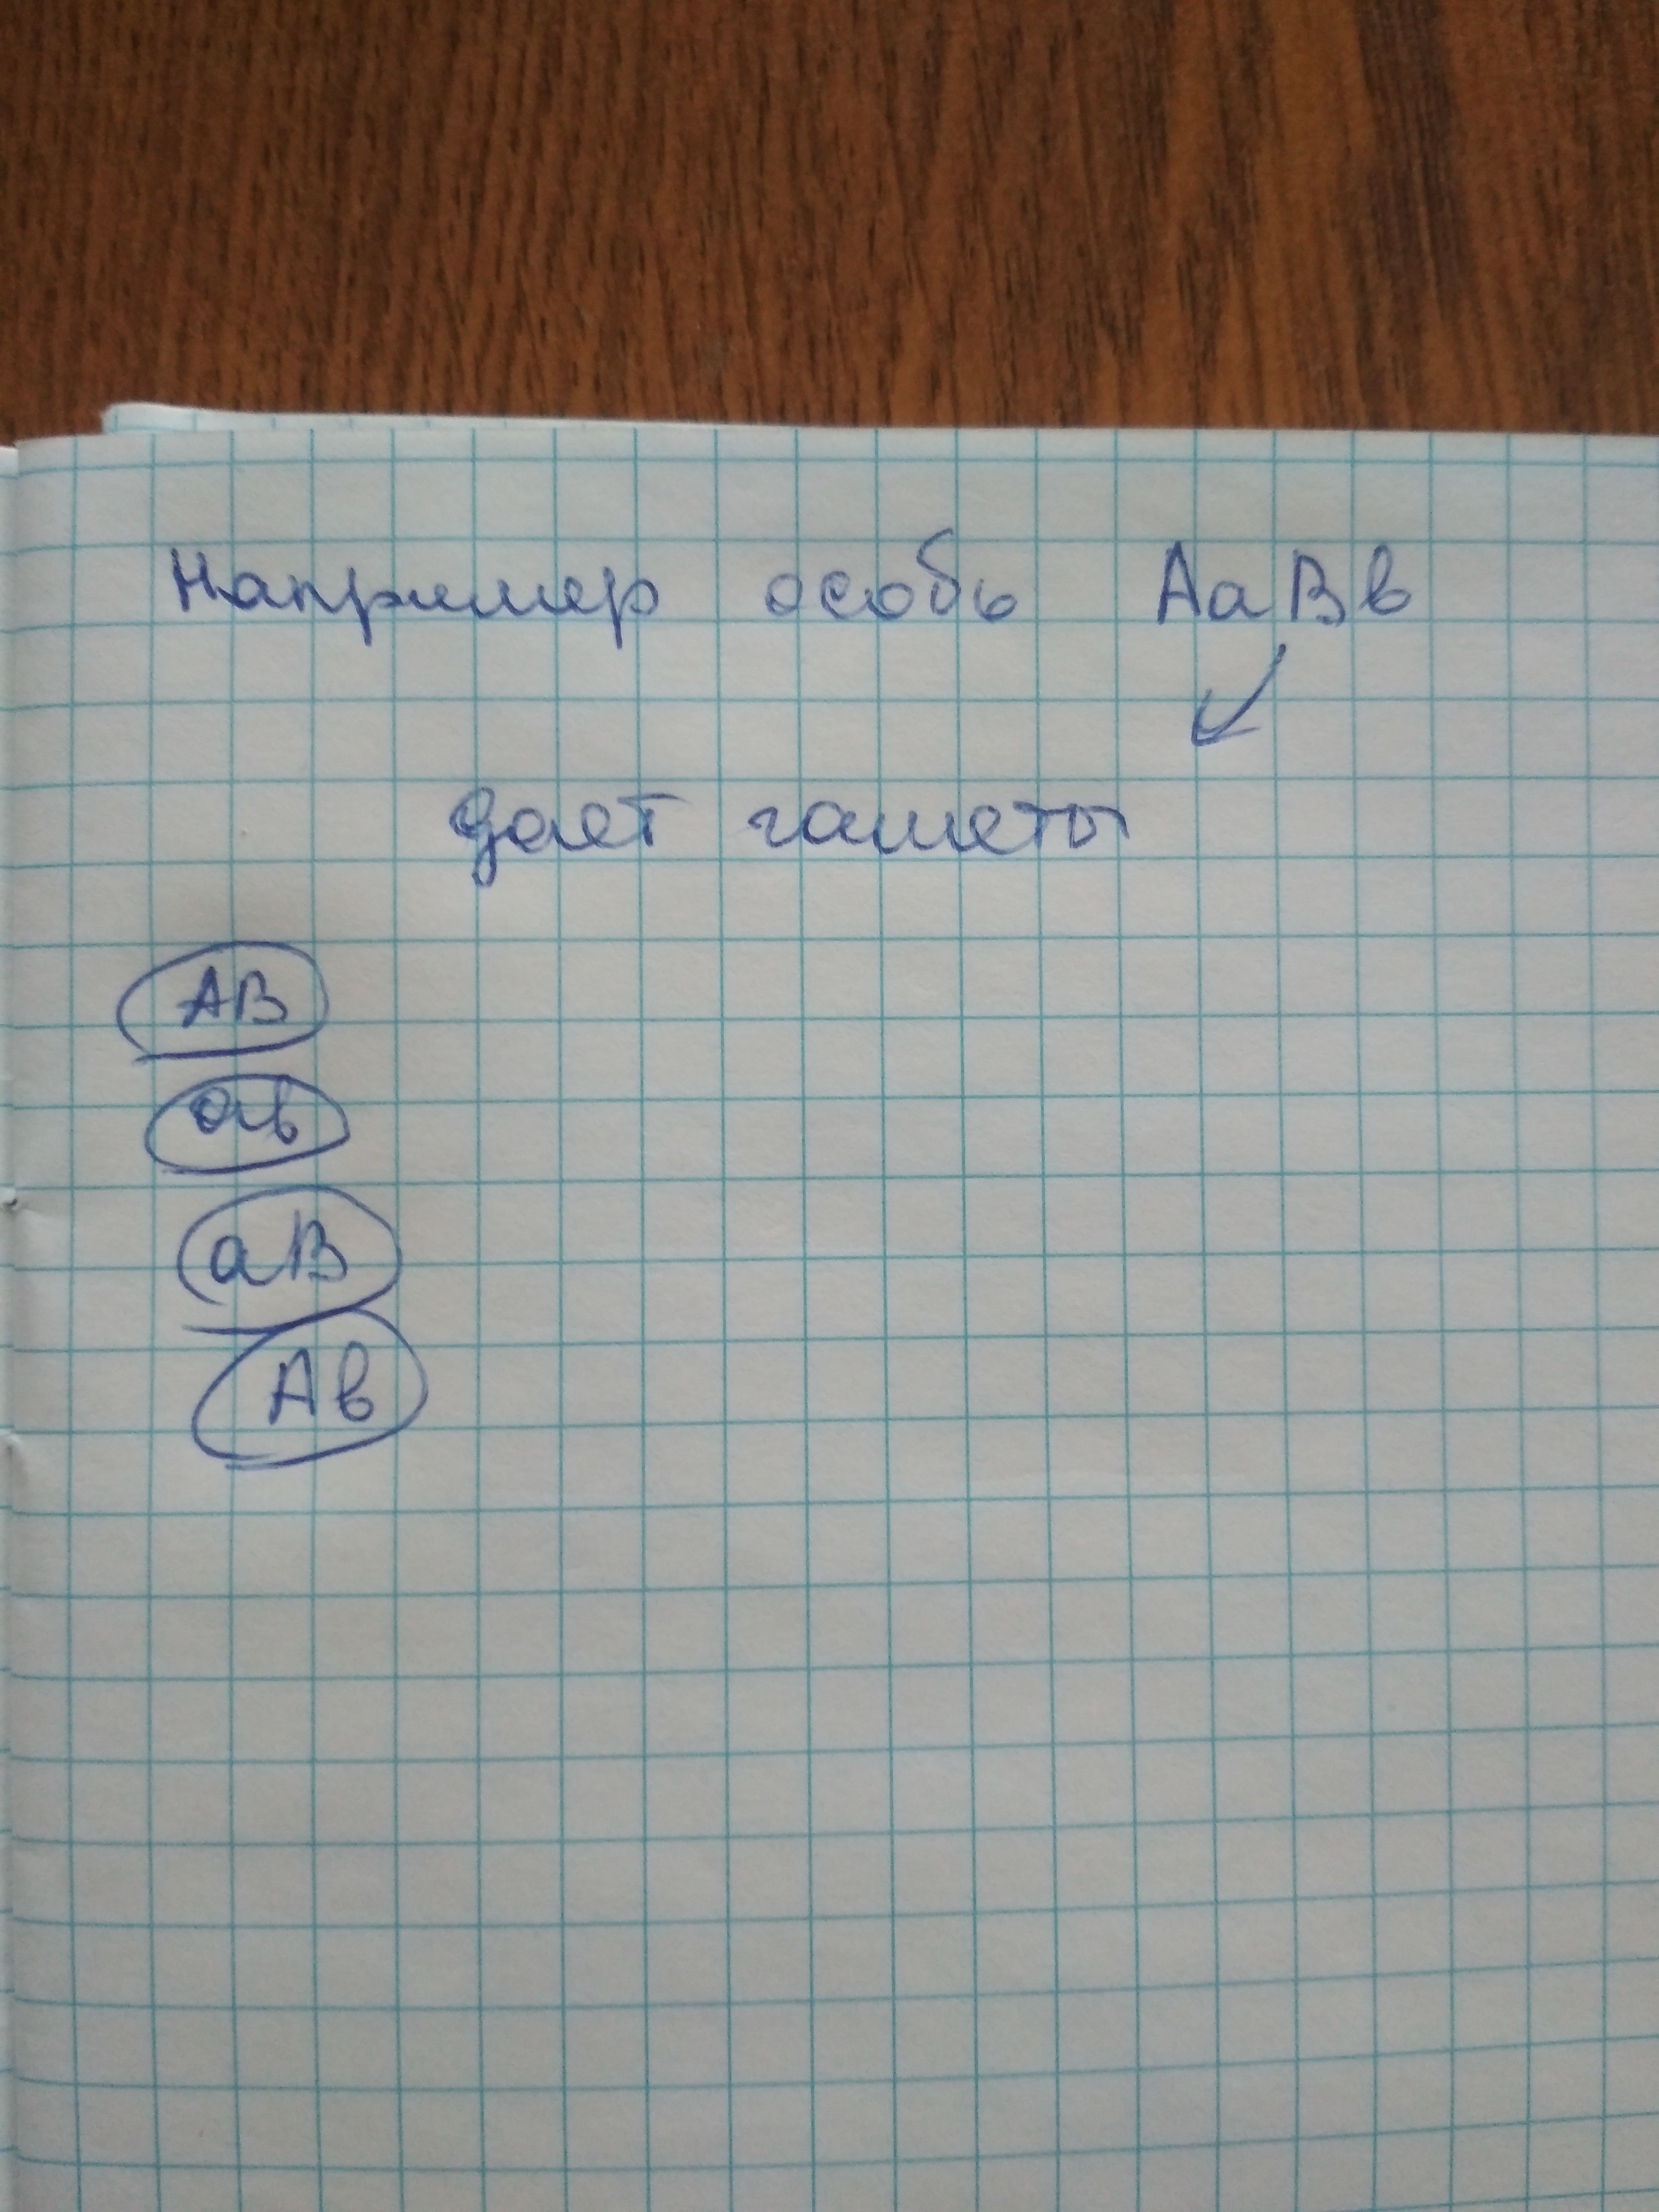 Например особь АаВв
дает гаметы
АВ
ав
аВ
Ав